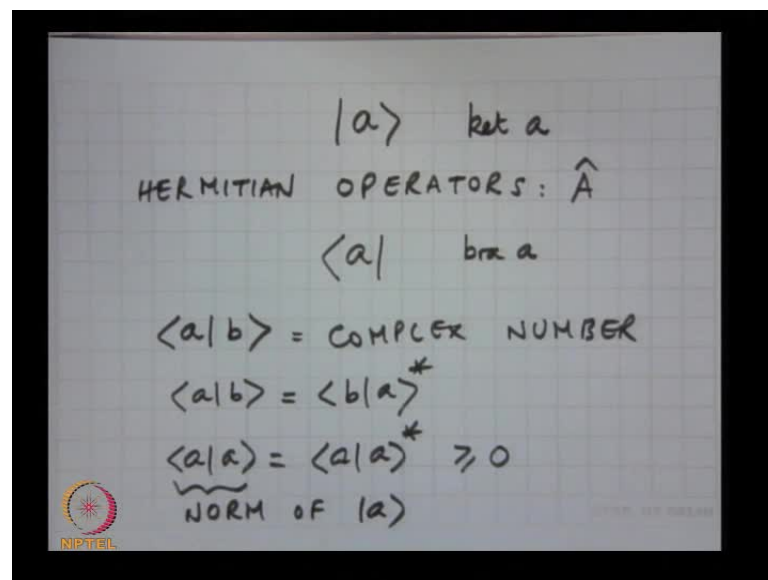 |a> ket a
HERMITIAN OPERATORS: Â
<a| bra a
<a|b> = COMPLEX NUMBER
<a|b> = <b|a>*
<a|a> = <a|a>* ⩾ 0
NORM OF |a>
NPTEL